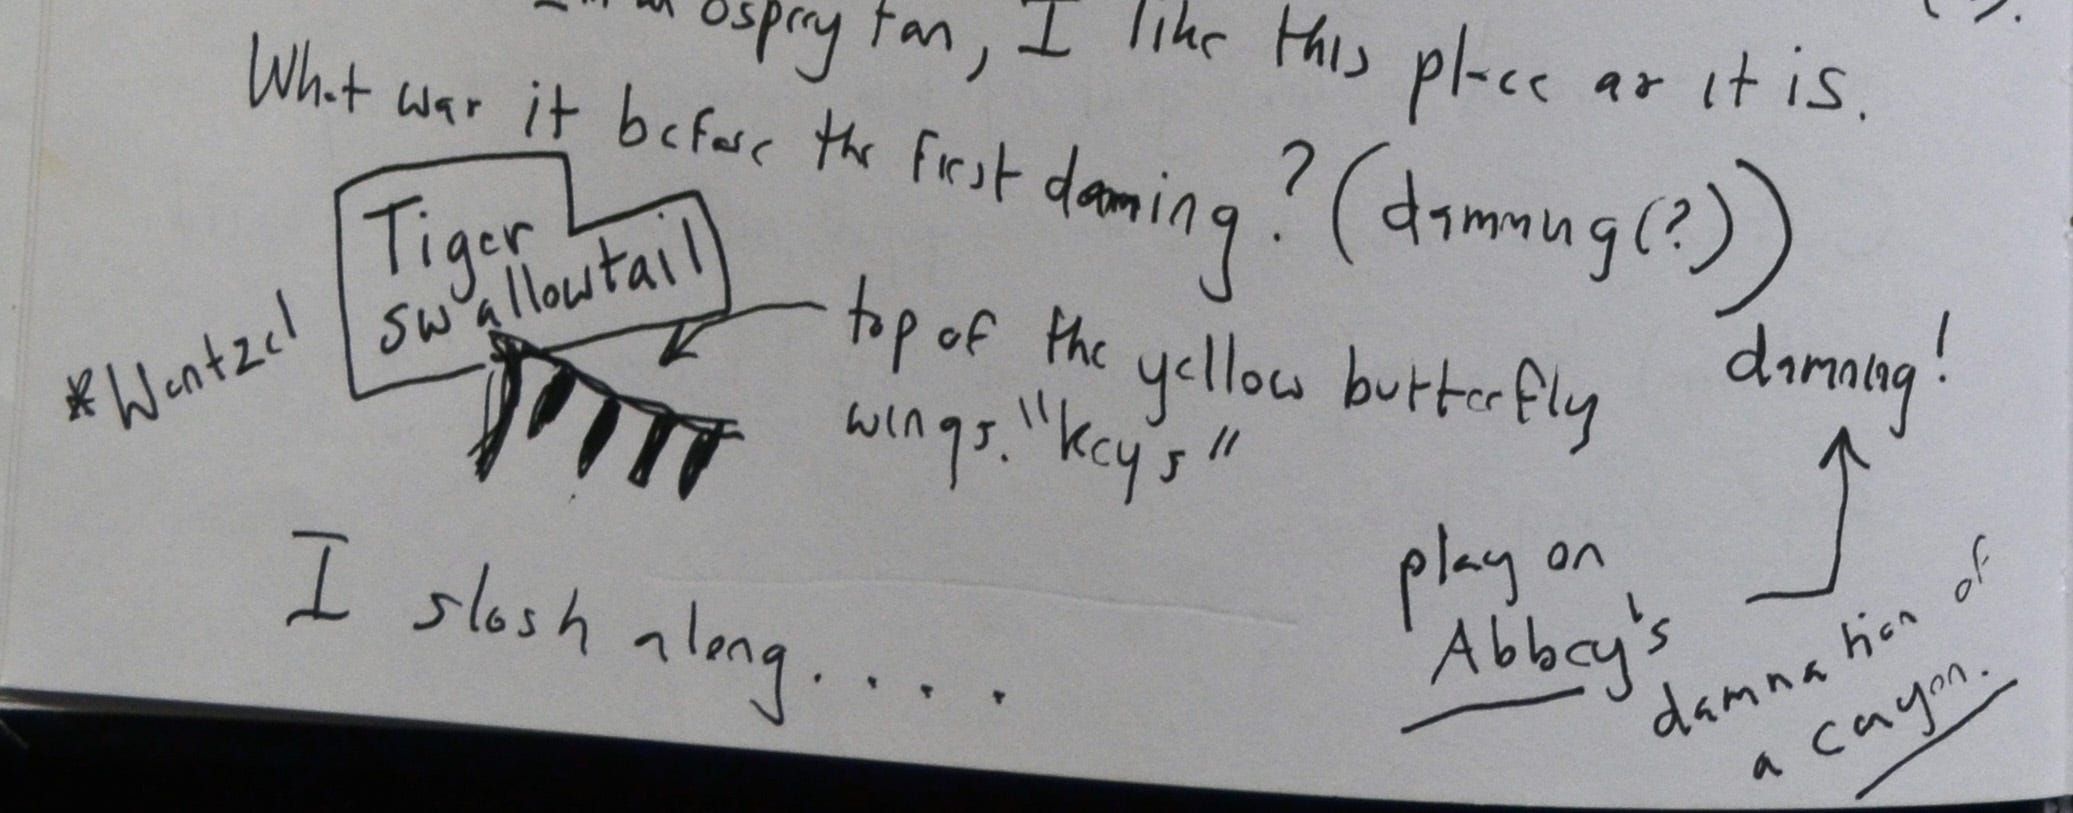 osprey fan, I like this place as it is.
What was it before the first daming? (damnng(?))
Tiger
swallowtail
*Wentzel
top of the yellow butterfly
wings. "keys"
damning!
I slosh along....
play on
Abbey's
damnation of
a cayon.